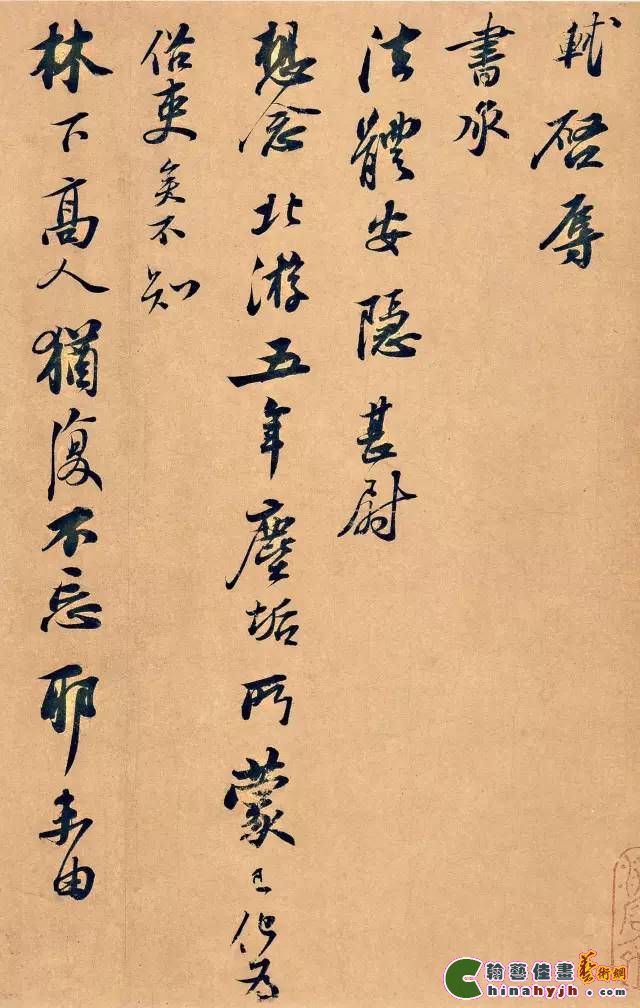 軾啓辱
書承
法體安隱甚尉
想念北游五年塵垢所蒙已化為
俗吏矣不知
林下高人猶復不忘耶未由
翰藝佳畫藝術網
Chinahyjh.com